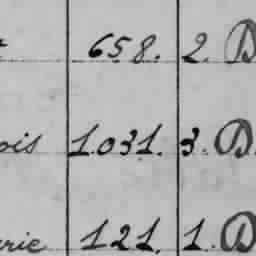 658. 2. D
ois 1.031. 3. D.
rie 121. 1. D